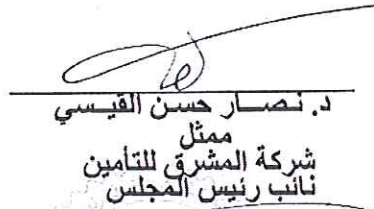 د. نصار حسن القيسي
ممثل
شركة المشرق للتأمين
نائب رئيس المجلس